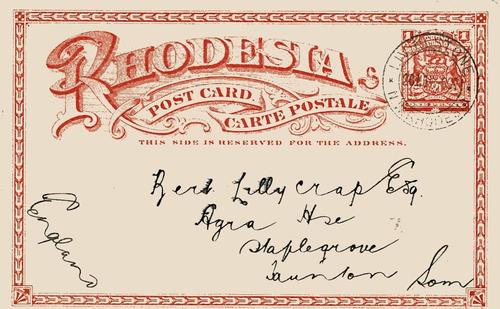 RHODESIA
POST CARD
CARTE POSTALE
THIS SIDE IS RESERVED FOR THE ADDRESS.
1 1
Lillycrap Esq.
Agra Hse
Staplegrove
Taunton Som
England